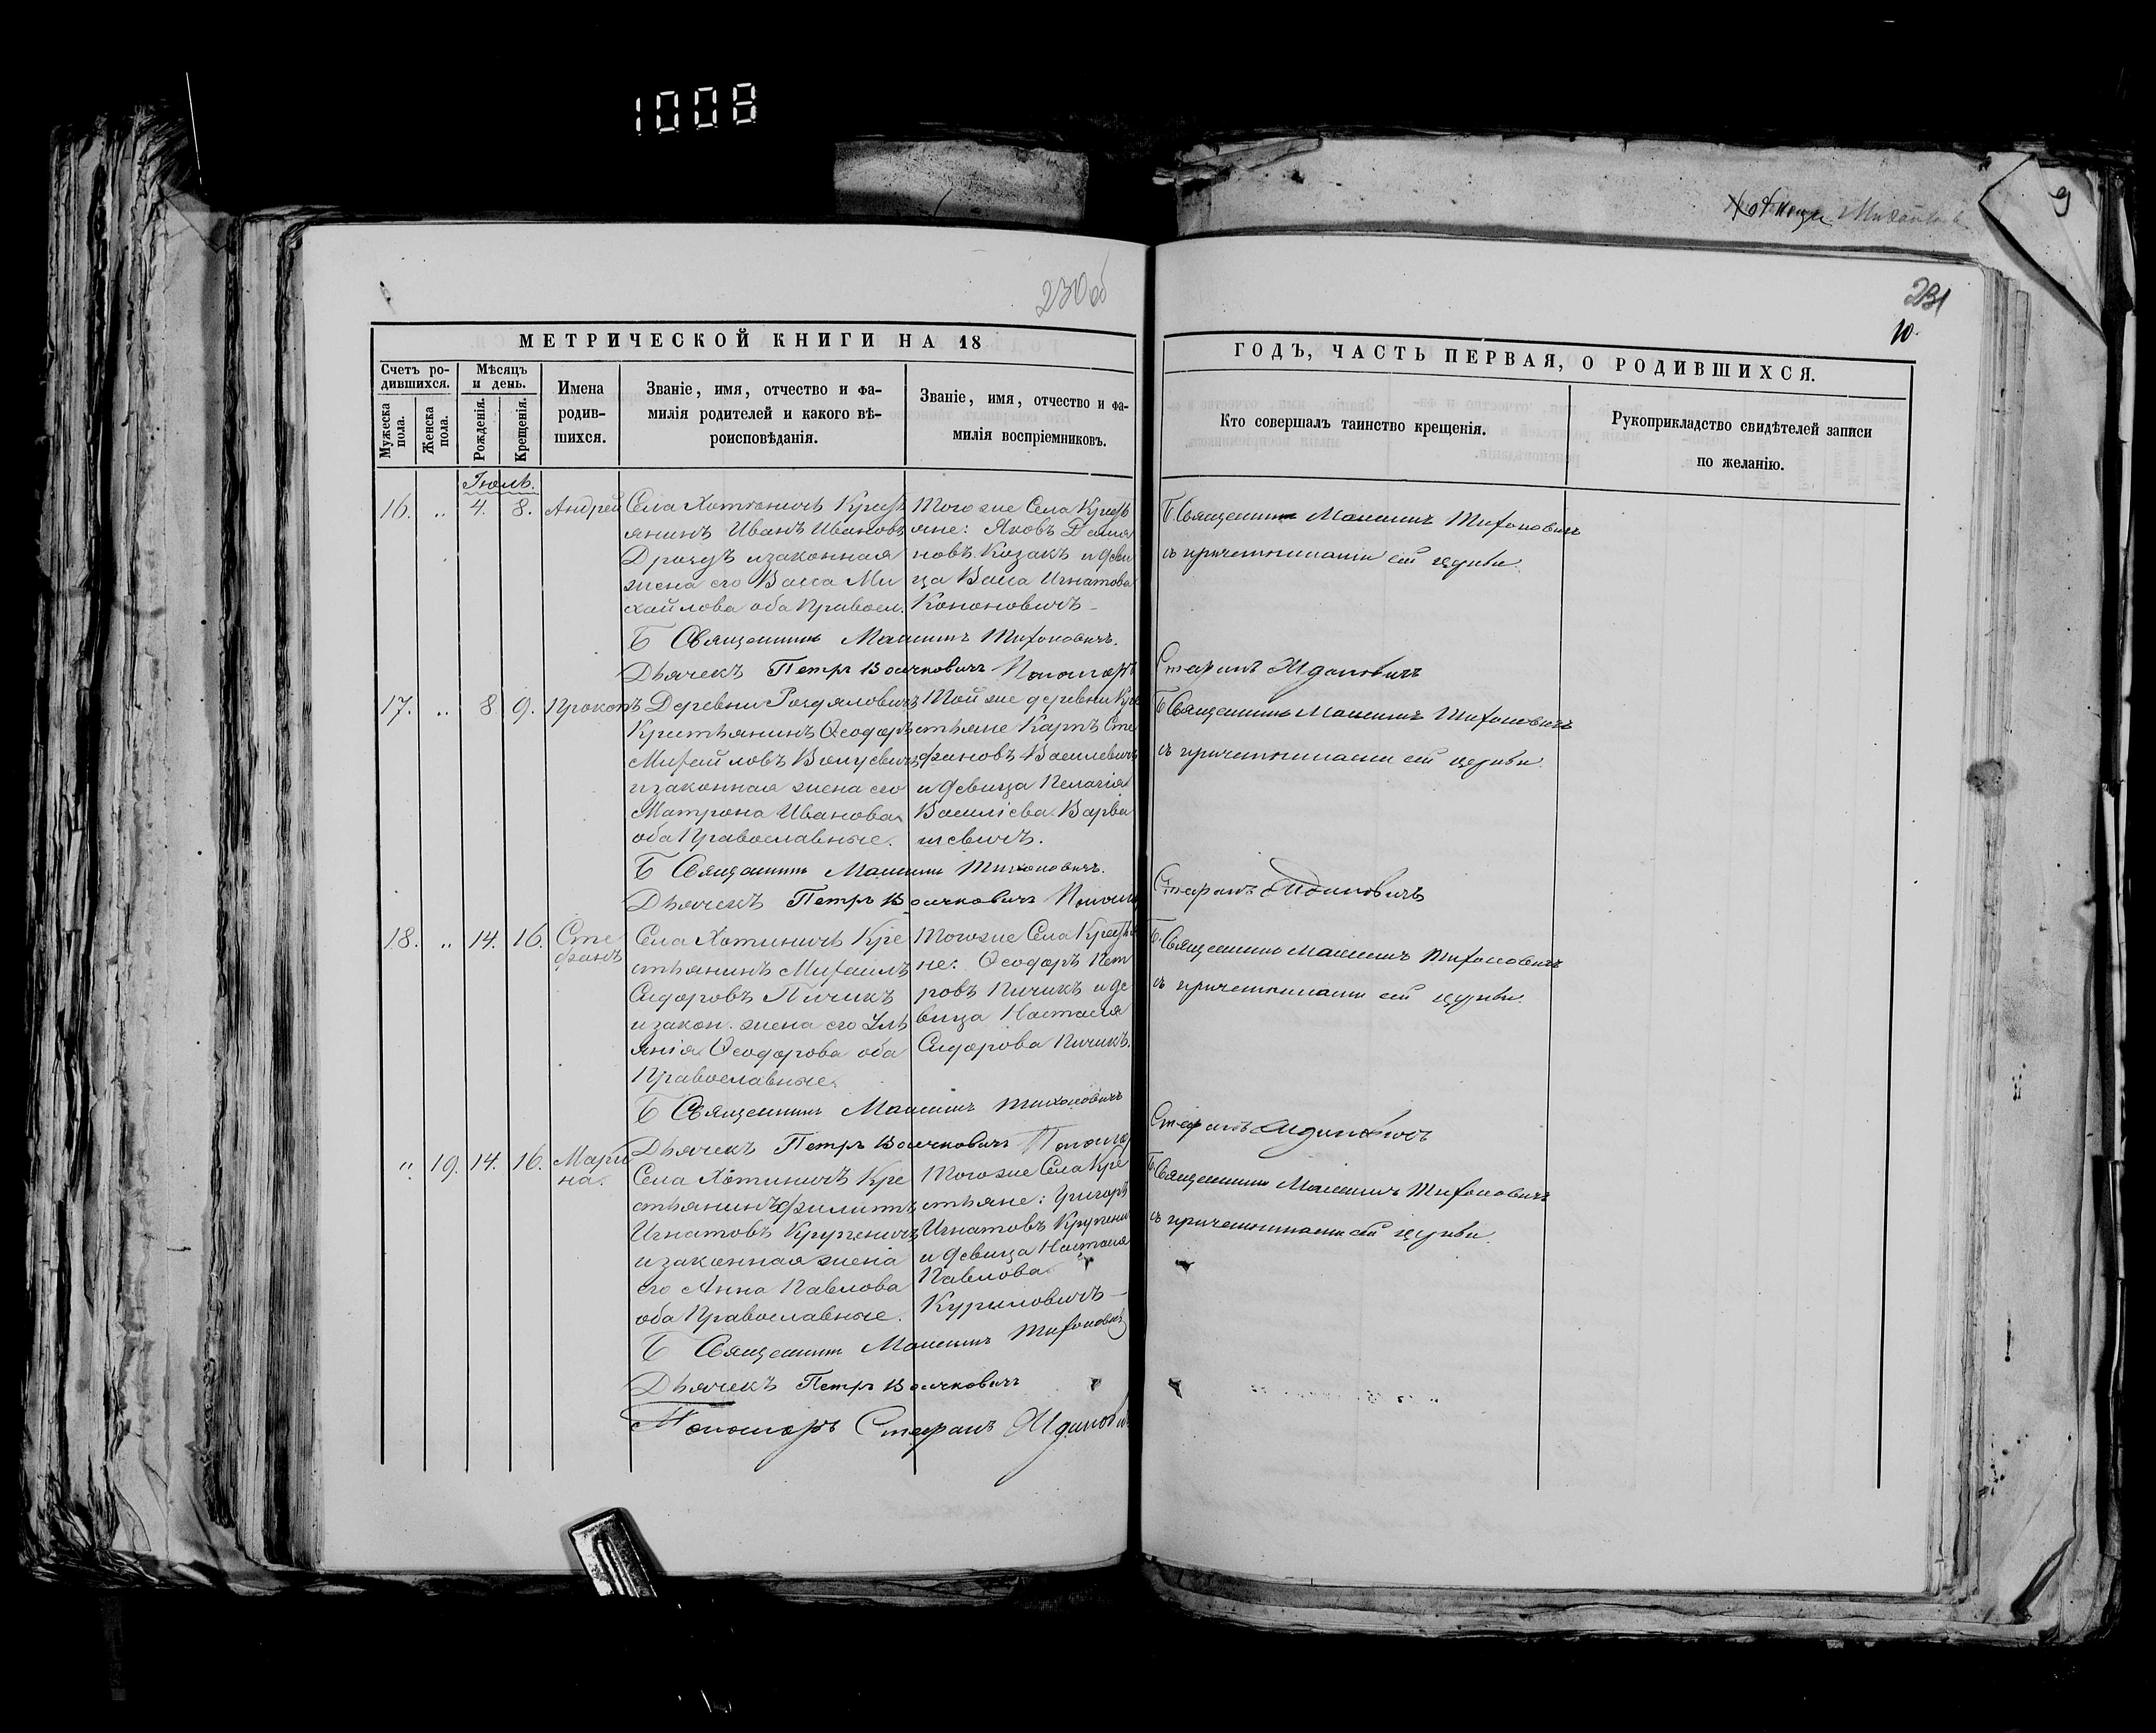 1008
230об
231
10.
МЕТРИЧЕСКОЙ КНИГИ НА 18
ГОДЪ, ЧАСТЬ ПЕРВАЯ, О РОДИВШИХСЯ.
Счетъ ро-
дившихся.
Мужеска пола.
Женска пола.
Мѣсяцъ
и день.
Рожденія.
Крещенія.
Имена
родив-
шихся.
Званіе, имя, отчество и фа-
милія родителей и какого вѣ-
роисповѣданія.
Званіе, имя, отчество и фа-
милія воспріемниковъ.
Кто совершалъ таинство крещенія.
Рукоприкладство свидѣтелей записи
по желанію.
Іюль.
16. „ 4. 8. Андрей
Села Хотеничъ Крест
янинъ Иванъ Ивановъ
Дроздъ и законная
жена его Васса Ми
хайлова оба Правосл.
Того же Села Крестъ
яне: Яковъ Дамія
новъ Козакъ и Деви
ца Васса Игнатова
Кононовичъ
Священникъ Тихоновичъ
съ причтомъ
Священникъ Тихоновичъ.
Дьячекъ Петръ Пономарь
Стефанъ Ждановичъ
17. „ 8 9. Прокопъ
Деревни
Крестьянинъ Ѳеодоръ
Михайловъ
и законная жена его
Матрона Иванова
оба Православные.
Той же деревни Кре
стьяне Карпъ Сте
фановъ Василевичъ
и девица Пелагія
Василіева Варва
шевичъ.
Священникъ Тихоновичъ
съ причтомъ
Священникъ Тихоновичъ.
Дьячекъ Петръ
Стефанъ Ждановичъ
18. „ 14. 16. Сте
фанъ
Села Хотиничъ Кре
стьянинъ Михаилъ
Сидоровъ Пичикъ
и закон. жена его Улъ
янія Ѳеодорова оба
Православные.
Того же Села Крестья
не: Ѳеодоръ Пет
ровъ Пичикъ и де
вица Настасія
Сидорова Пичикъ.
Священникъ Тихоновичъ
съ причтомъ
Священникъ Тихоновичъ
Дьячекъ Петръ
Стефанъ Ждановичъ
„ 19. 14. 16. Мари
на.
Села Хотиничъ Кре
стьянинъ Филиппъ
Игнатовъ Кругленичъ
и законная жена
его Анна Павлова
оба Православные.
Того же Села Кре
стьяне: Григорій
Игнатовъ
и девица Настасія
Павлова
Куриловичъ
Священникъ Тихоновичъ
съ причтомъ
Священникъ Тихоновичъ
Дьячекъ Петръ
Пономарь Стефанъ Ждановичъ